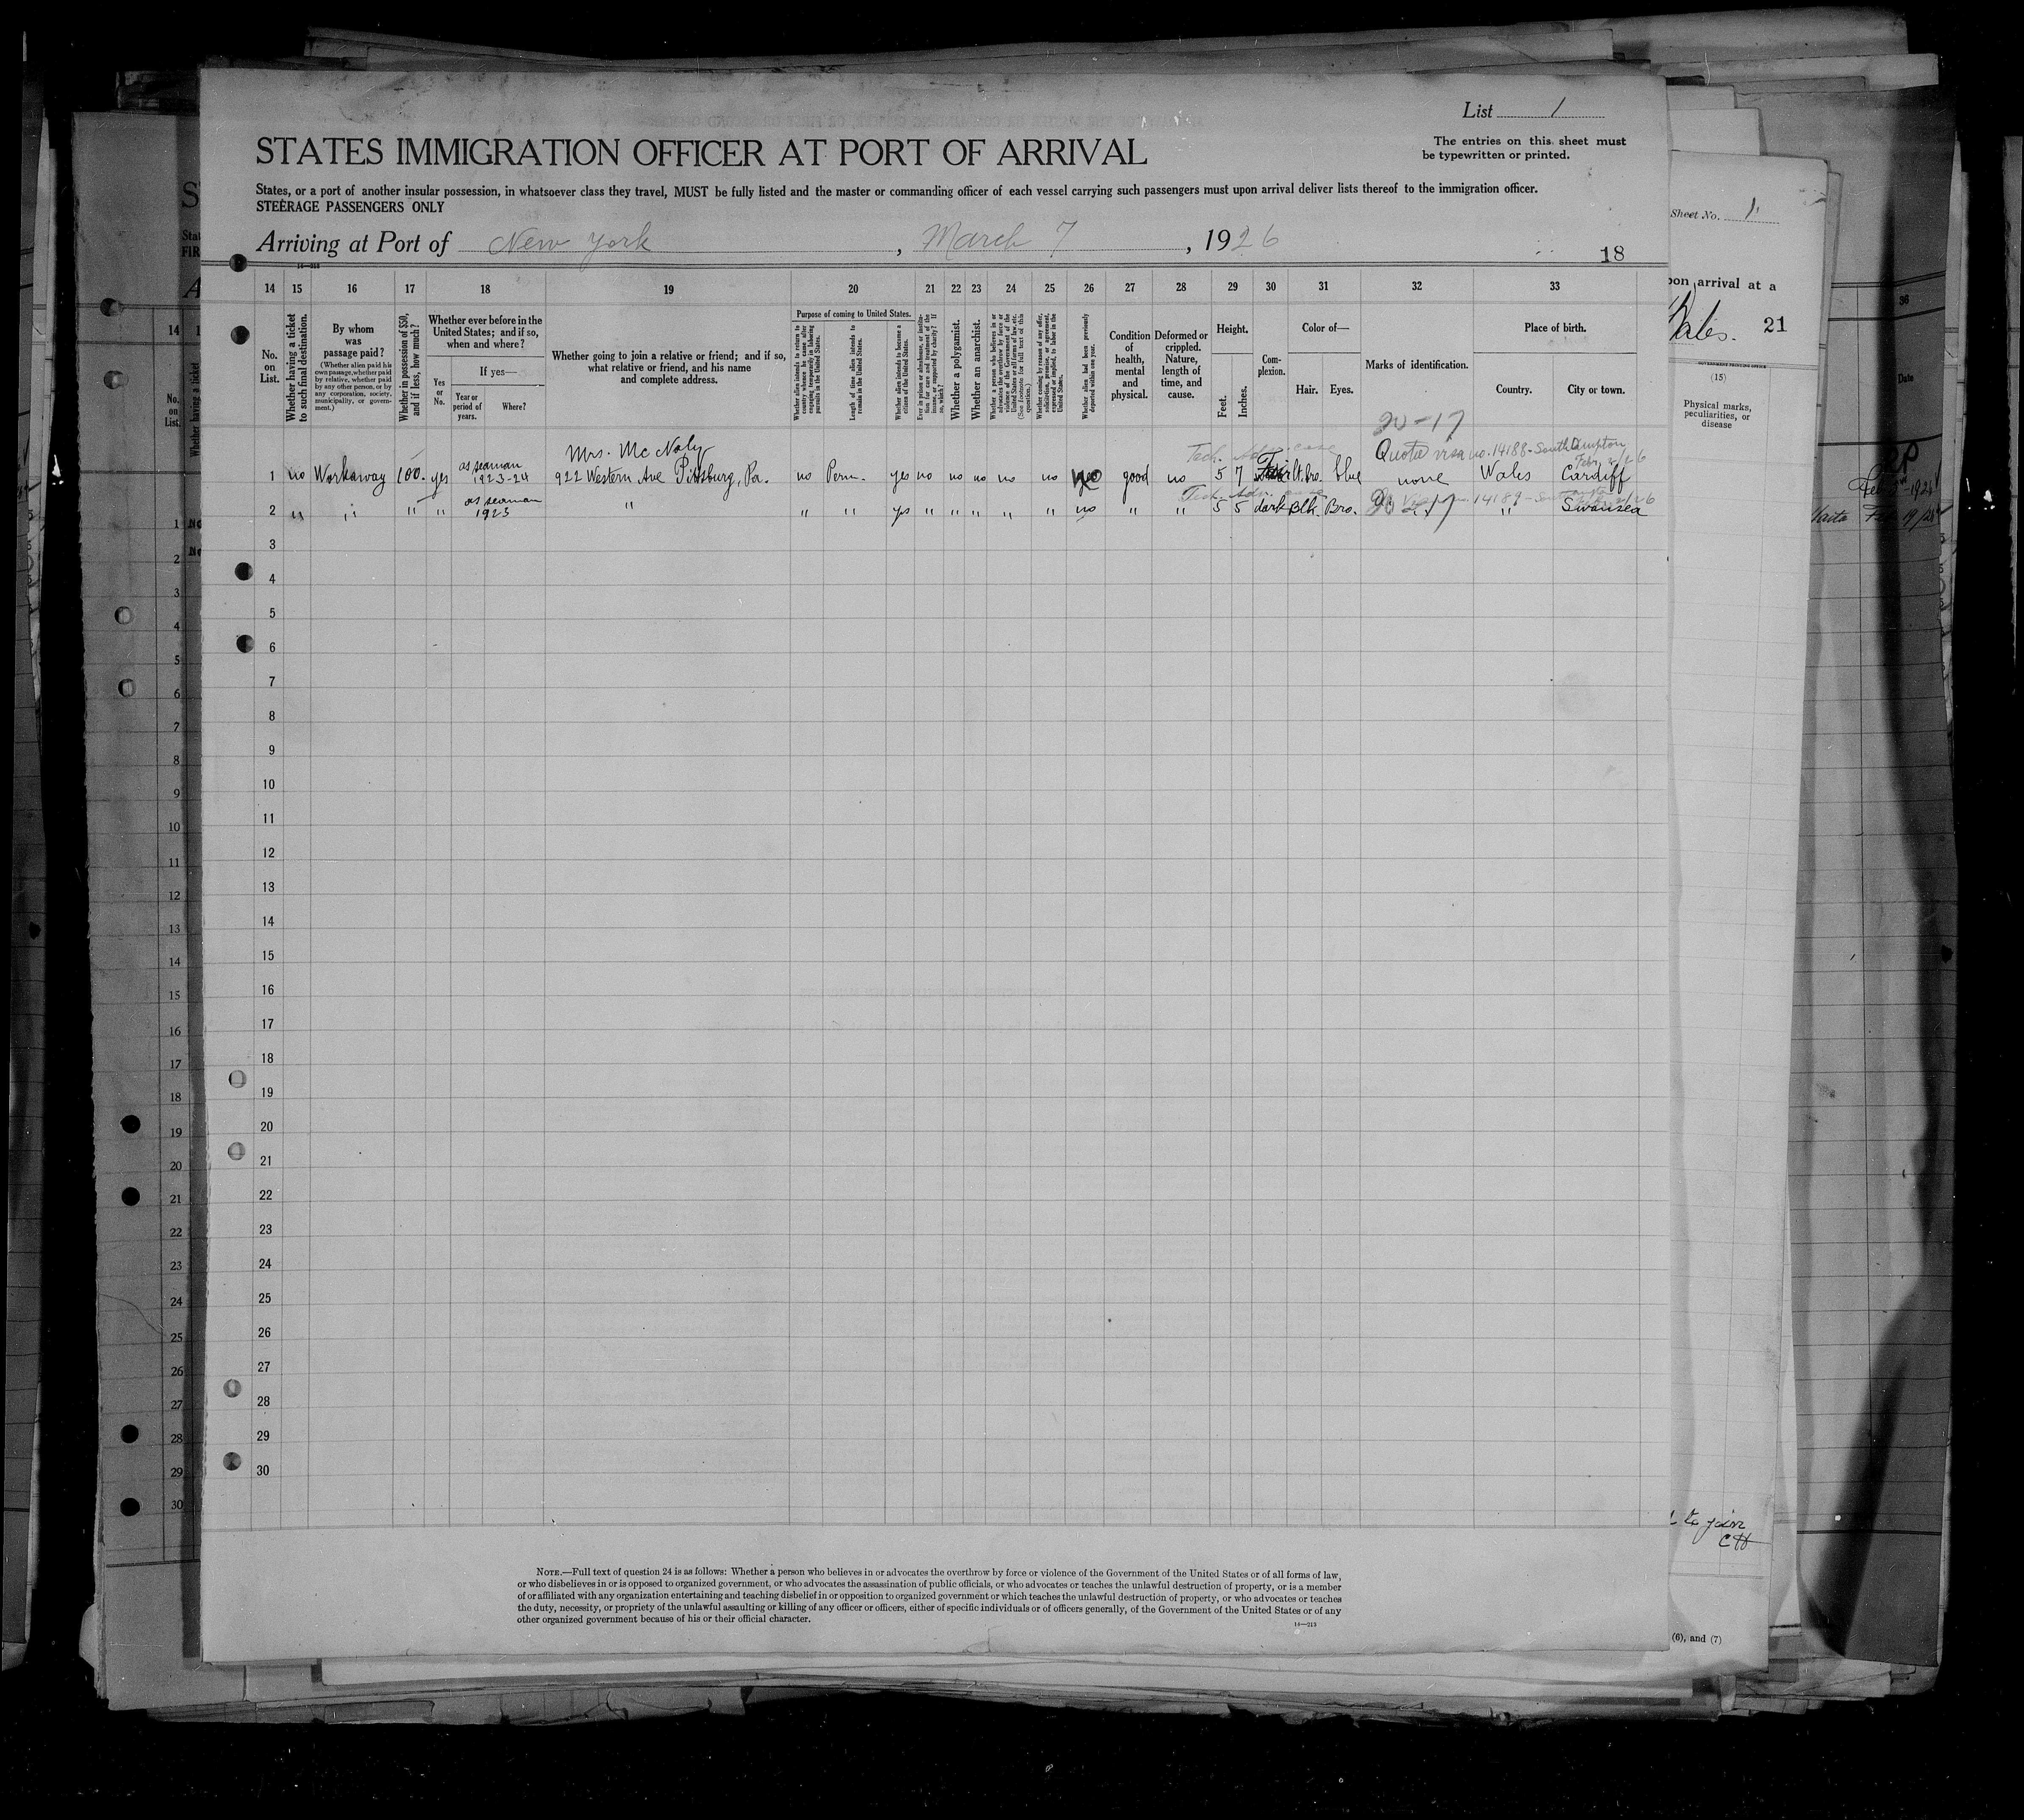 List 1
The entries on this sheet must
be typewritten or printed.
STATES IMMIGRATION OFFICER AT PORT OF ARRIVAL
States, or a port of another insular possession, in whatsoever class they travel, MUST be fully listed and the master or commanding officer of each vessel carrying such passengers must upon arrival deliver lists thereof to the immigration officer.
STEERAGE PASSENGERS ONLY
Arriving at Port of New York, March 7, 1926
18
14 15 16 17 18 19 20 21 22 23 24 25 26 27 28 29 30 31 32 33
No. on List.
Whether having a ticket to such final destination.
By whom was passage paid?
(Whether alien paid his own passage, whether paid by relative, whether paid by any other person, or by any corporation, society, municipality, or government.)
Whether in possession of $50, and if less, how much?
Whether ever before in the United States; and if so, when and where?
Yes or No.
If yes—
Year or period of years.
Where?
Whether going to join a relative or friend; and if so, what relative or friend, and his name and complete address.
Purpose of coming to United States.
Whether alien intends to return to country whence he came after engaging temporarily in laboring pursuits in the United States.
Length of time alien intends to remain in the United States.
Whether alien intends to become a citizen of the United States.
Ever in prison or almshouse, or institution for care and treatment of the insane, or supported by charity? If so, which?
Whether a polygamist.
Whether an anarchist.
Whether a person who believes in or advocates the overthrow by force or violence of the Government of the United States or all forms of law, etc. (See footnote for full text of this question.)
Whether coming by reason of any offer, solicitation, promise, or agreement, expressed or implied, to labor in the United States.
Whether alien had been previously deported within one year.
Condition of health, mental and physical.
Deformed or crippled. Nature, length of time, and cause.
Height.
Feet.
Inches.
Complexion.
Color of—
Hair.
Eyes.
Marks of identification.
Place of birth.
Country.
City or town.
20-17
Mrs. McNaly
Quota visa no. 14188 - Southampton
Feb. 2/26
1 no Workaway 100. yes as seaman 1923-24 922 Western Ave Pittsburg, Pa. no Perm. yes no no no no no no good no 5 7 Fair lt. bro. blue none Wales Cardiff
14189
2 " " " " as seaman 1923 " " " yes " " " " " no " " 5 5 dark Blk. Bro. " Swansea
3
4
5
6
7
8
9
10
11
12
13
14
15
16
17
18
19
20
21
22
23
24
25
26
27
28
29
30
NOTE.—Full text of question 24 is as follows: Whether a person who believes in or advocates the overthrow by force or violence of the Government of the United States or of all forms of law,
or who disbelieves in or is opposed to organized government, or who advocates the assassination of public officials, or who advocates or teaches the unlawful destruction of property, or is a member
of or affiliated with any organization entertaining and teaching disbelief in or opposition to organized government or which teaches the unlawful destruction of property, or who advocates or teaches
the duty, necessity, or propriety of the unlawful assaulting or killing of any officer or officers, either of specific individuals or of officers generally, of the Government of the United States or of any
other organized government because of his or their official character.
14—213
Sheet No. 1
upon arrival at a
Wales. 21
(15)
Physical marks, peculiarities, or disease
to join
(6), and (7)
36
Date